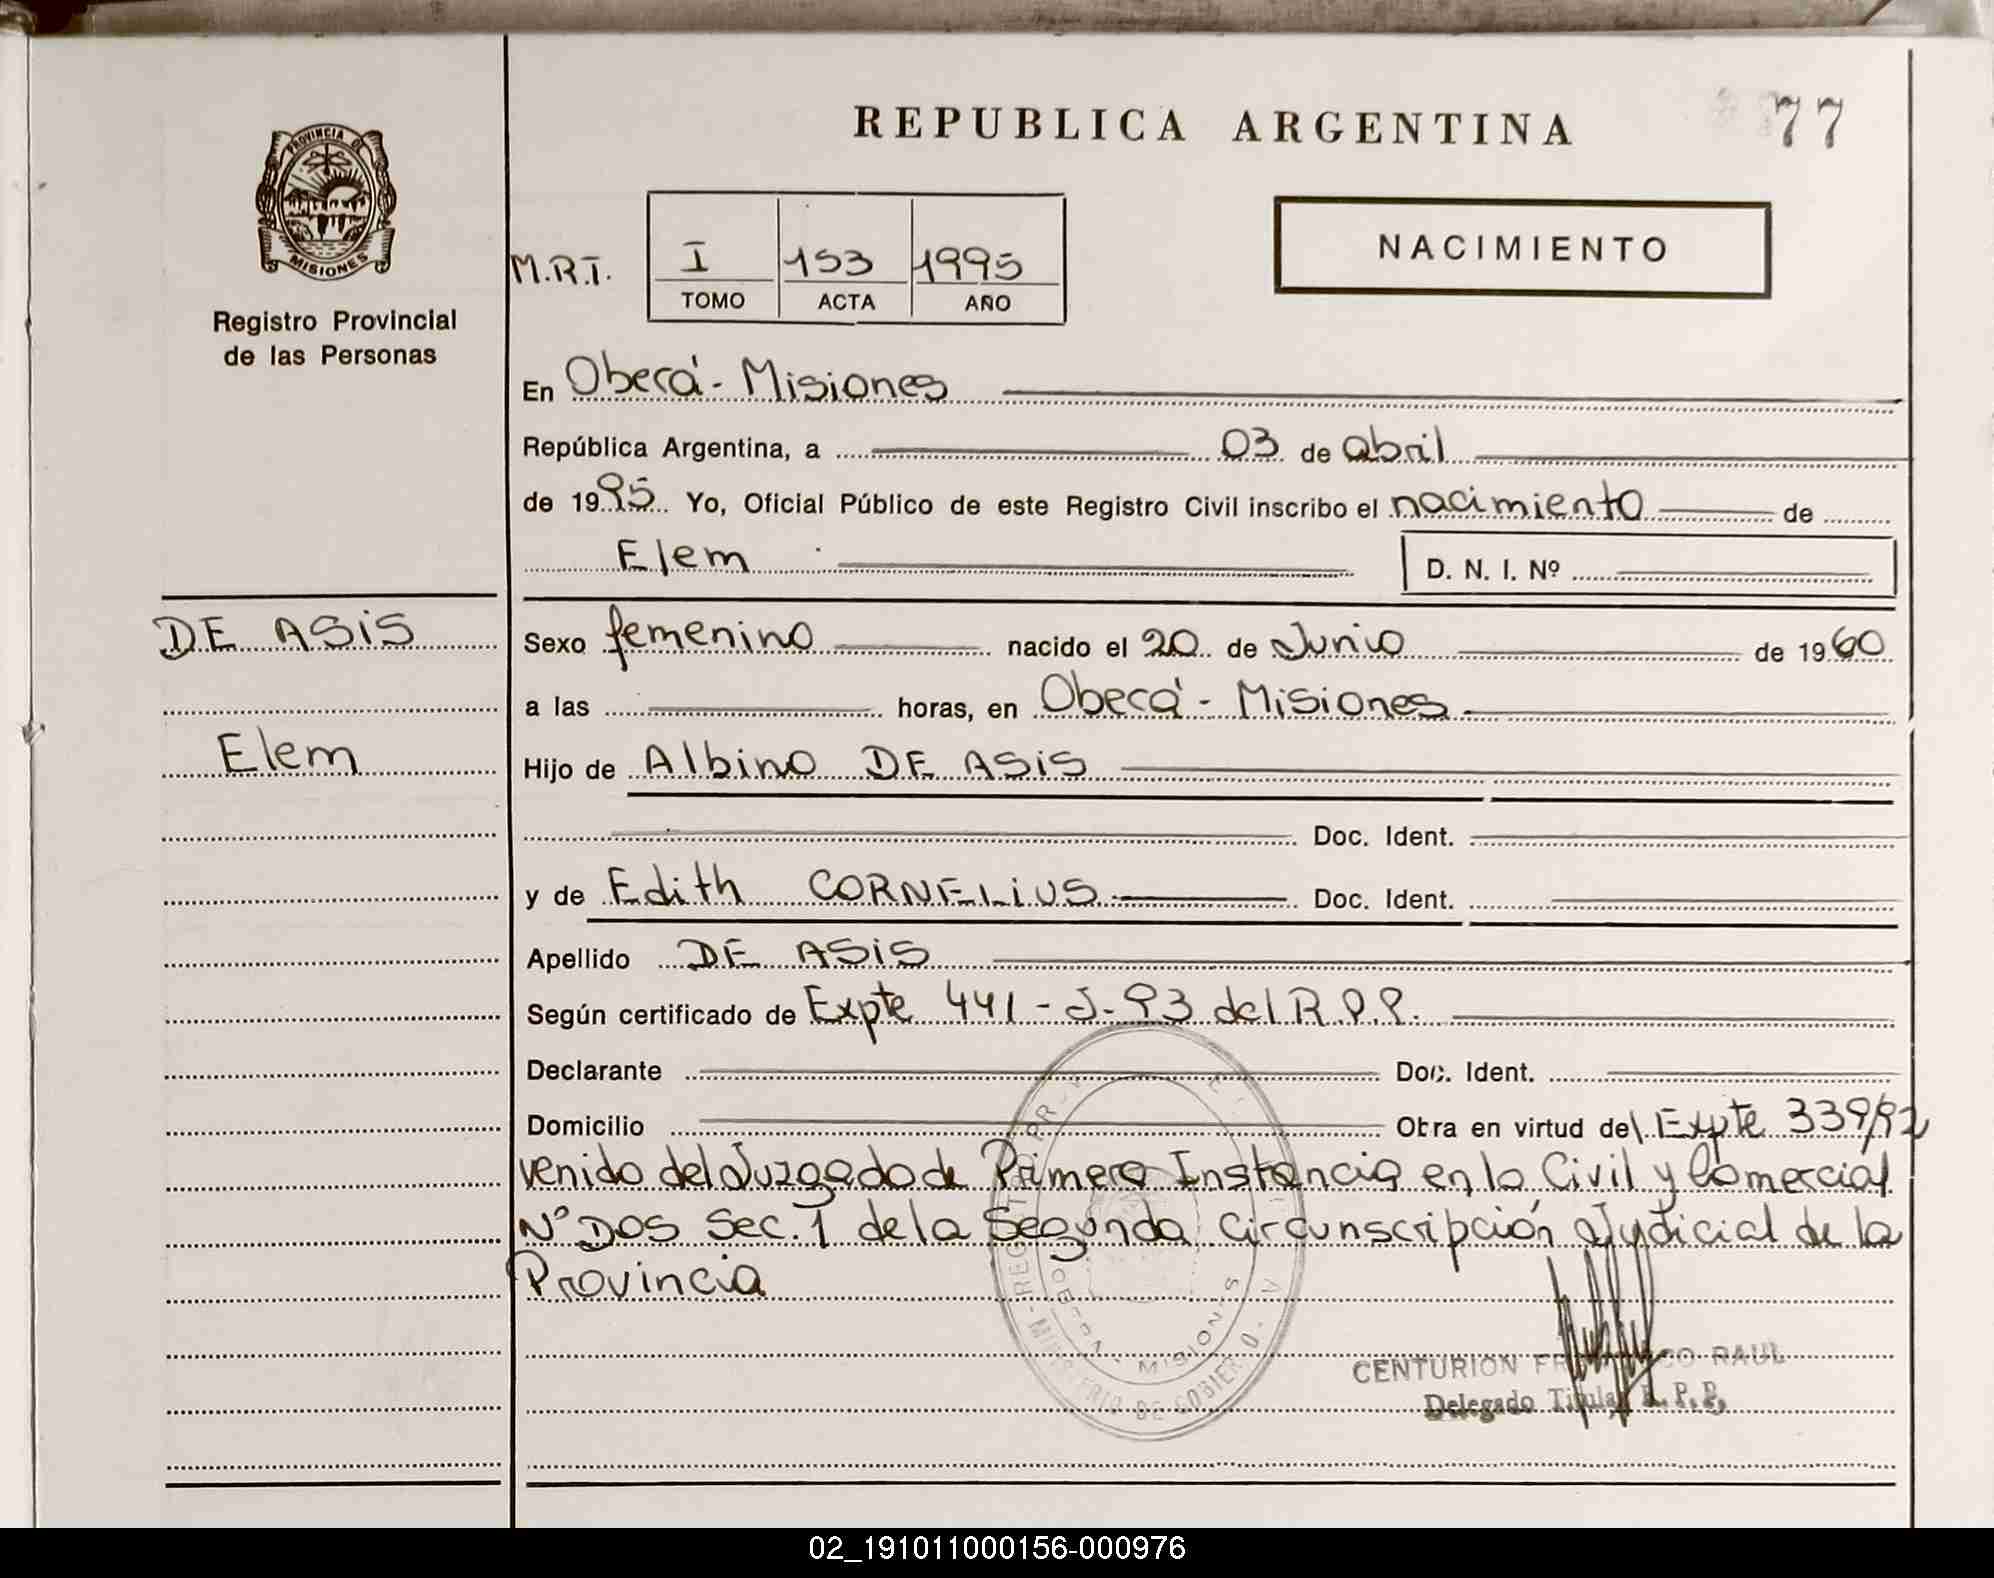 REPUBLICA ARGENTINA
77
PROVINCIA DE
MISIONES
Registro Provincial
de las Personas
M.R.T.
I 153 1995
TOMO ACTA AÑO
NACIMIENTO
En Oberá - Misiones
República Argentina, a 03 de abril
de 1995 Yo, Oficial Público de este Registro Civil inscribo el nacimiento de
Elem D. N. I. Nº
DE ASiS
Elem
Sexo femenino nacido el 20 de Junio de 1960
a las horas, en Oberá - Misiones
Hijo de Albino DE ASiS
Doc. Ident.
y de Edith CORNELiUS Doc. Ident.
Apellido DE ASiS
Según certificado de Expte 441 - J - 93 del R.P.P.
Declarante Doc. Ident.
Domicilio Obra en virtud del Expte 339/92
venido del Juzgado de Primera Instancia en lo Civil y Comercial
Nº DOS Sec. 1 de la Segunda Circunscripción Judicial de la
Provincia
OBERA - MISIONES
MINISTERIO DE GOBIERNO
CENTURION FRANCISCO RAUL
Delegado Titular R. P. P.
02_191011000156-000976